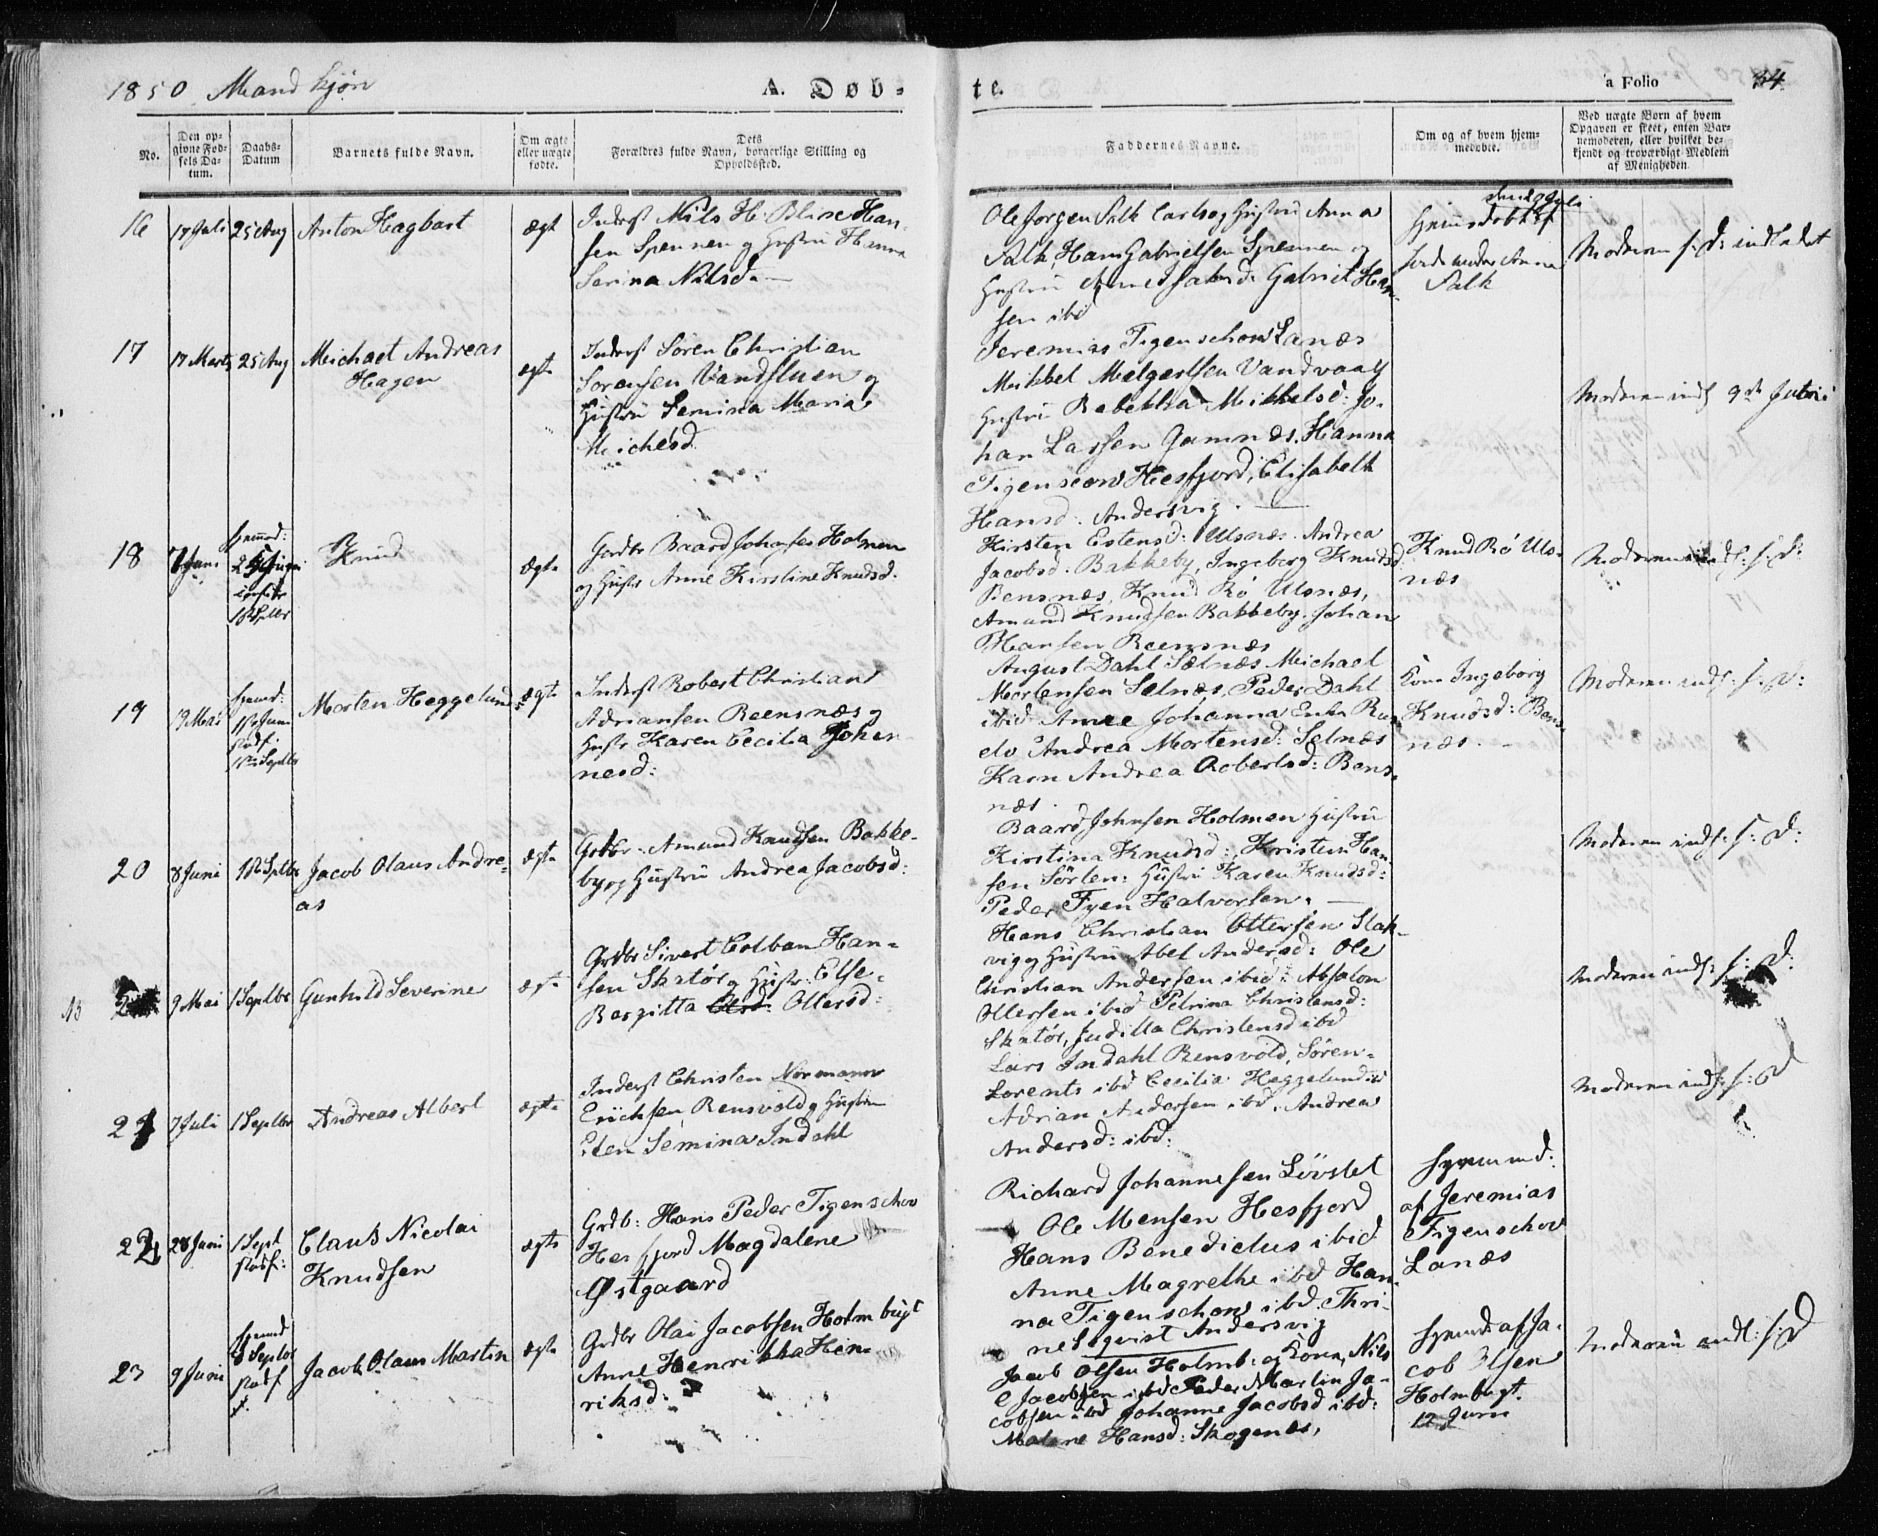 1850 Mandkjøn
A. Døb-
te.
a Folio
34.
No.
Den op-
givne Fød-
sels Da-
tum.
Daabs-
Datum
Barnets fulde Navn.
Om ægte
eller uægte
fødte.
Dets
Forældres fulde Navn, borgerlige Stilling og
Opholdssted.
Faddernes Navne.
Om og af hvem hjem-
medøbte.
Ved uægte Børn af hvem
Opgaven er skeet, enten Bar-
nemoderen, eller hvilket be-
kjendt og troværdigt Medlem
af Menigheden.
16
17 Juli
25 Aug
Anton Hagbart
ægt
Inderst Nils H. Blix Han-
sen Spennen og Hustru Hanna
Serina Nilsd.
Ole Jørgen Falk Carls og Hustru Anna
Falk, Hans Gabrielsen Spennen og
Hustru Gabriel Han-
sen ibd
Hjemdøbt af
Anna
Falk
Moderen s: D: indladet
17
17 Marts
25 Aug
Michael Andreas
Hagen
ægte
Inderst Søren Christian
Sørensen Vandstuen og
Hustru Semina Maria
Michelsd.
Jeremias Figenschou Lanæs
Mikkel Melgertsen Vandvaag
Hustru Rebekka Mikkelsd: Jo-
han Larsen Jamnæs. Hanna
Figenscou Hesfjord, Elisabeth
Hansd: Andersvig.
Moderen inds 9de Juni
18
7 Juni
Hjemd:
25 Juni
1 Septbr
Knud
ægte
Gaardbr Baard Johnsen Holmen
og Hustr Anne Kirstine Knudsd.
Kirsten Estensd: Ulsnæs. Andrea
Jacobsd: Bakkeby, Ingeborg Knudsd
Bensnæs, Knud Rø Ulsnæs,
Amund Knudsen Bakkeby. Johan
Hansen Reensnæs
Knud Rø Uls-
næs
Moderen inds: s: D:
19
9 Mai
Hjemd:
Juni
stadf.
1 Septbr
Morten Heggelund
ægte
Inderst Robert Christian
Adriansen Reensnæs og
Hustr Karen Cecilia Johan-
nesd:
August Dahl Selnæs Michael
Mortensen Selnæs, Peder Dahl
ibid. Anne Johanna
Andrea Mortensd: Selnæs
Karn Andrea Robertsd: Bens-
næs.
Kone Ingeborg
Knudsd: Bens-
næs.
Moderen inds: s: D:
20
8 Juni
1 Septbr
Jacob Olaus Andre-
as
ægte
Grdbr: Amund Knudsen Bakke-
by og Hustru Andrea Jacobsd:
Baard Johnsen Holmen Hustru
Kirstina Knudsd: Kristen Han-
sen Sørlen: Hustru Karen Knudsd:
Peder Fyen Halvorsen.
Moderen inds: s: D:
9 Mai
1 Septbr
Gunhild Severine
ægte
Grdbr Sivert Colban Han-
sen Skatør og Hustr: Else
Bergitta Olsd: Ottersd:
Hans Christian Ottersen Slak-
vig og Hustru Abel Andersd: Ole
Christian Andersen ibid: Absalon
Ottersen ibid Petrina Christensd:
Skatør, Juditta Christensd ibd
Moderen inds: s: D:
21
7 Juli
1 Septbr
Andreas Albert
ægte
Inderst Christen Normann
Erichsen Rensvold og Hustru
Elen Semina Indahl
Lars Indahl Rensvold, Søren
Lorents ibd Cecilia Heggelund ibd
Adrian Andersen ibd. Andrea
Andersd: ibd:
Moderen inds: s: D
22
28 Juni
1 Sept
stadf:
Claus Nicolai
Knudsen
ægte
Grdb: Hans Peder Figenschou
Hesfjord Magdalene
Østgaard
Richard Johannesen Løvslet
Ole Mensen Hesfjord
Hans Benedictus ibid
Anne Magrethe ibd. Han-
na Figenschou ibd. Thri-
ne Seqvist Andersvig
Hjemmed:
af Jeremias
Figenschou
Lanæs
23
9 Juni
Hjemd
8 Septbr
stadf
Jacob Olaus Martin
ægte
Grdbr Olai Jacobsen Holmbugt
Anne Henrikka Hen-
riksd:
Jacob Olsen Holmb: og Kone, Nils
Jacobsen ibd Peder Martin Ja-
cobsen ibd Johanne Jacobsd ibd:
Malene Hansd: Skognæs,
Hjemd af Ja-
cob Olsen
Holmbugt.
12 Juni
Moderen inds: s: D